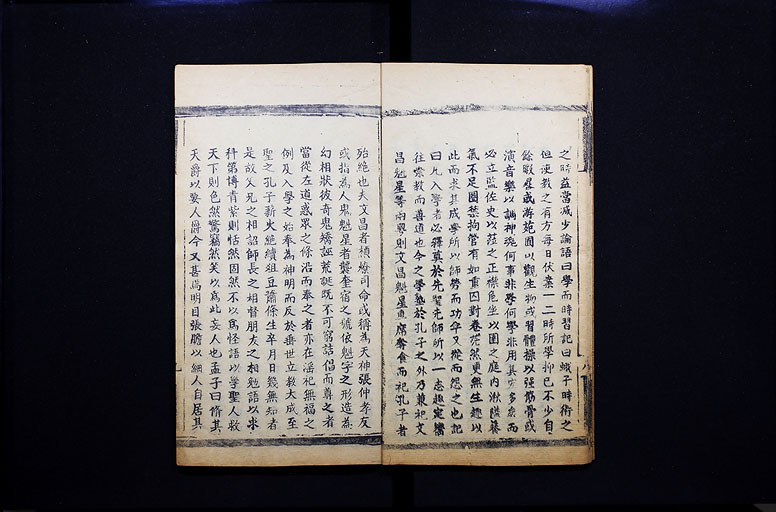 之時益當減少論語曰學而時習記曰蛾子時術之
但使教之有方每日伏案一二時所學抑已不少自
餘暇晷或游苑囿以觀生物或習體操以強筋骨或
演音樂以調神魂何事非學何學非用其為多矣而
必立監佐史以蒞之正襟危坐以圉之庭內湫隘養
氣不足圈禁拘管有如重囚對卷茫然更無生趣以
此而求其成學所以師勞而功半又從而怨之也記
曰凡入學者必釋奠於先聖先師所以一志趣定嚮
往崇教而善道也今之學塾於孔子之外乃兼祀文
昌魁星等兩粵則文昌魁星專席奪食而祀孔子者
殆絕也夫文昌者槱燎司命或稱為天神張仲孝友
或指為人鬼魁星者襲奎宿之號依魁字之形造為
幻相狀彼奇鬼矯誣荒誕既不可窮詰倡而尊之者
當從左道惑眾之條沿而奉之者亦在淫祀無福之
例及入學之始奉為神明而反於垂世立教大成至
聖之孔子薪火絕續俎豆蕭條生卒月日幾無知者
是故父兄之相詔師長之相督朋友之相勉語以求
科第博青紫則恬然固然不以為怪語以學聖人救
天下則色然驚竊然笑以為此妄人也孟子曰脩其
天爵以要人爵今又甚焉明目張膽以細人自居其